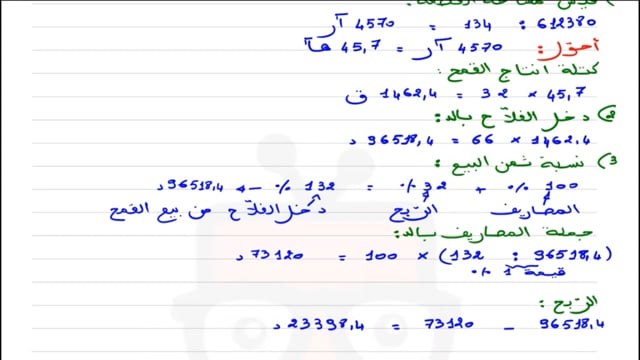 قيس مساحة القطعة:
612380 : 134 = 4570 آر
أحوّل: 4570 آر = 45,7 هآ
كتلة انتاج القمح:
45,7 × 32 = 1462,4 ق
2) دخل الفلاّح بالد:
1462,4 × 66 = 96518,4 د
3) نسبة ثمن البيع:
100 % + 32 % = 132 % → 96518,4 د
المصاريف الرّبح دخل الفلاّح من بيع القمح
جملة المصاريف بالد:
(96518,4 : 132) × 100 = 73120 د
قيمة 1 %
الرّبح:
96518,4 – 73120 = 23398,4 د